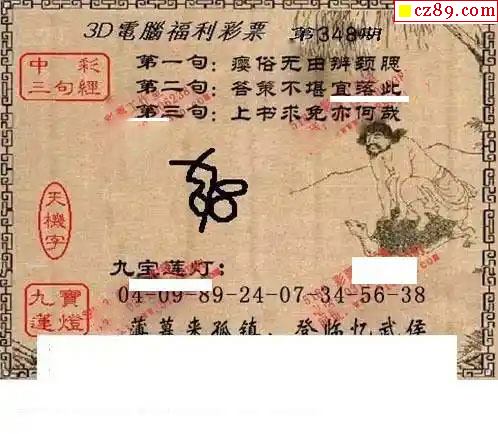 cz89.com
3D電腦福利彩票 第348期
中彩
三句經
第一句：瘿俗无由辨颈腮
第二句：答策不堪宜落此
第三句：上书求免亦何哉
天機字
九宝莲灯：
九寶
蓮燈
04-09-89-24-07-34-56-38
薄暮来孤镇，登临忆武侯